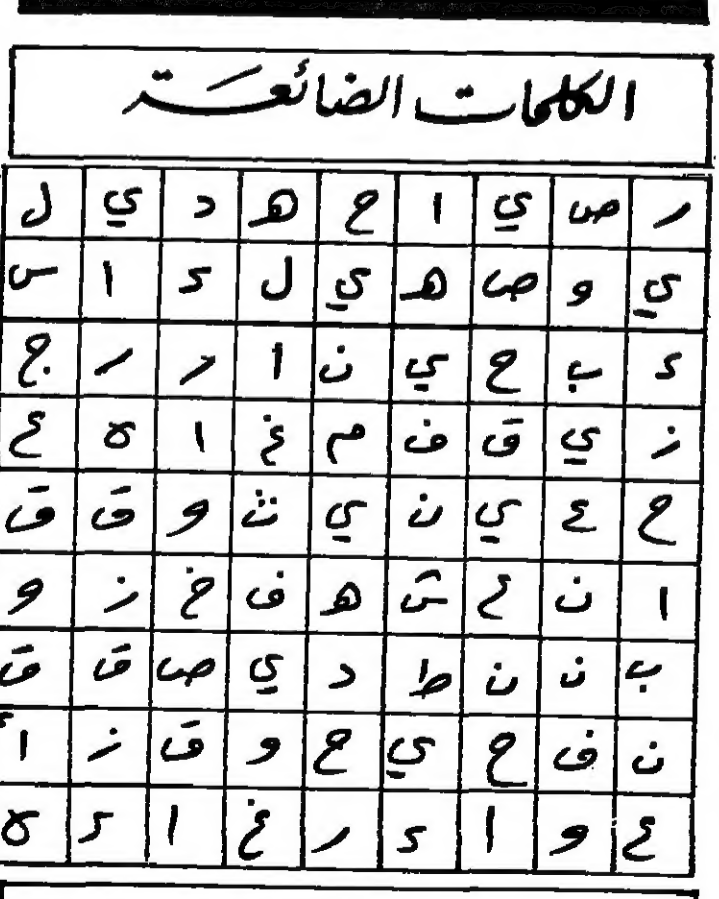 الكلمات الضائعة
ر ص ي ا ح هـ د ي ل
ي و ص هـ ي ل ء ا س
ء ب ح ي ن ا ر ر ج
ز ي ق ف م غ ا ة ع
ح ع ي ن ي ث و ق ق
ا ن ع ش هـ ف خ ز و
ب ن ن ط د ي ص ق ق
ن ف ح ي ح و ق ز أ
ع و ا ء ر غ ا ء ة